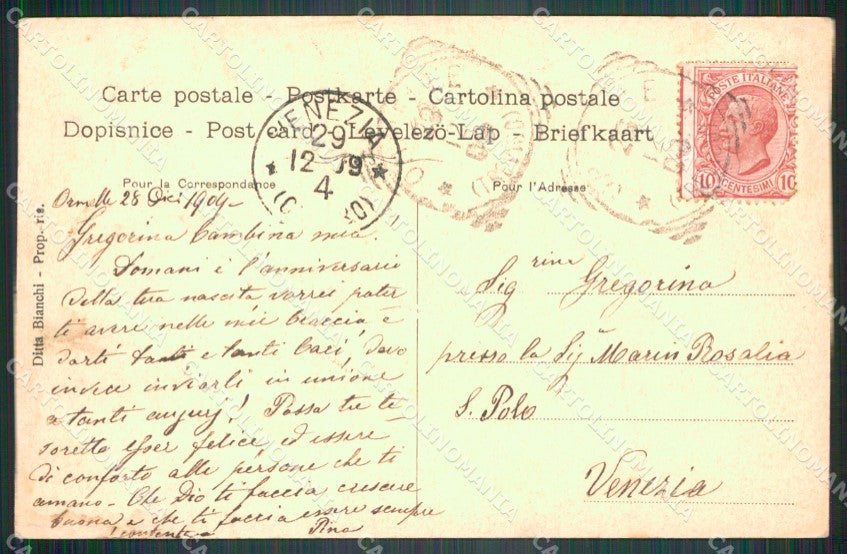 Carte postale - Postkarte - Cartolina postale
Dopisnice - Post card - Levelezö-Lap - Briefkaart
Pour la Correspondance
Pour l'Adresse
VENEZIA
29
12 09
4
POSTE ITALIANE
10 CENTESIMI 10
Ditta Bianchi - Prop. ris.
28 Dici 1909
Gregorina bambina mia.
Domani è l'anniversario
della tua nascita vorrei poter
ti avere nelle mie braccia e
darti tanti e tanti baci, devo
invece inviarli in unione
a tanti augurj! Possa tu te-
soretto esser felice, ed essere
di conforto alle persone che ti
amano - Che Dio ti faccia crescere
buona e che ti faccia essere sempre
contenta
Pina
Sigrina Gregorina
presso la Sigra Marin Rosalia
S. Polo
Venezia
CARTOLINOMANIA